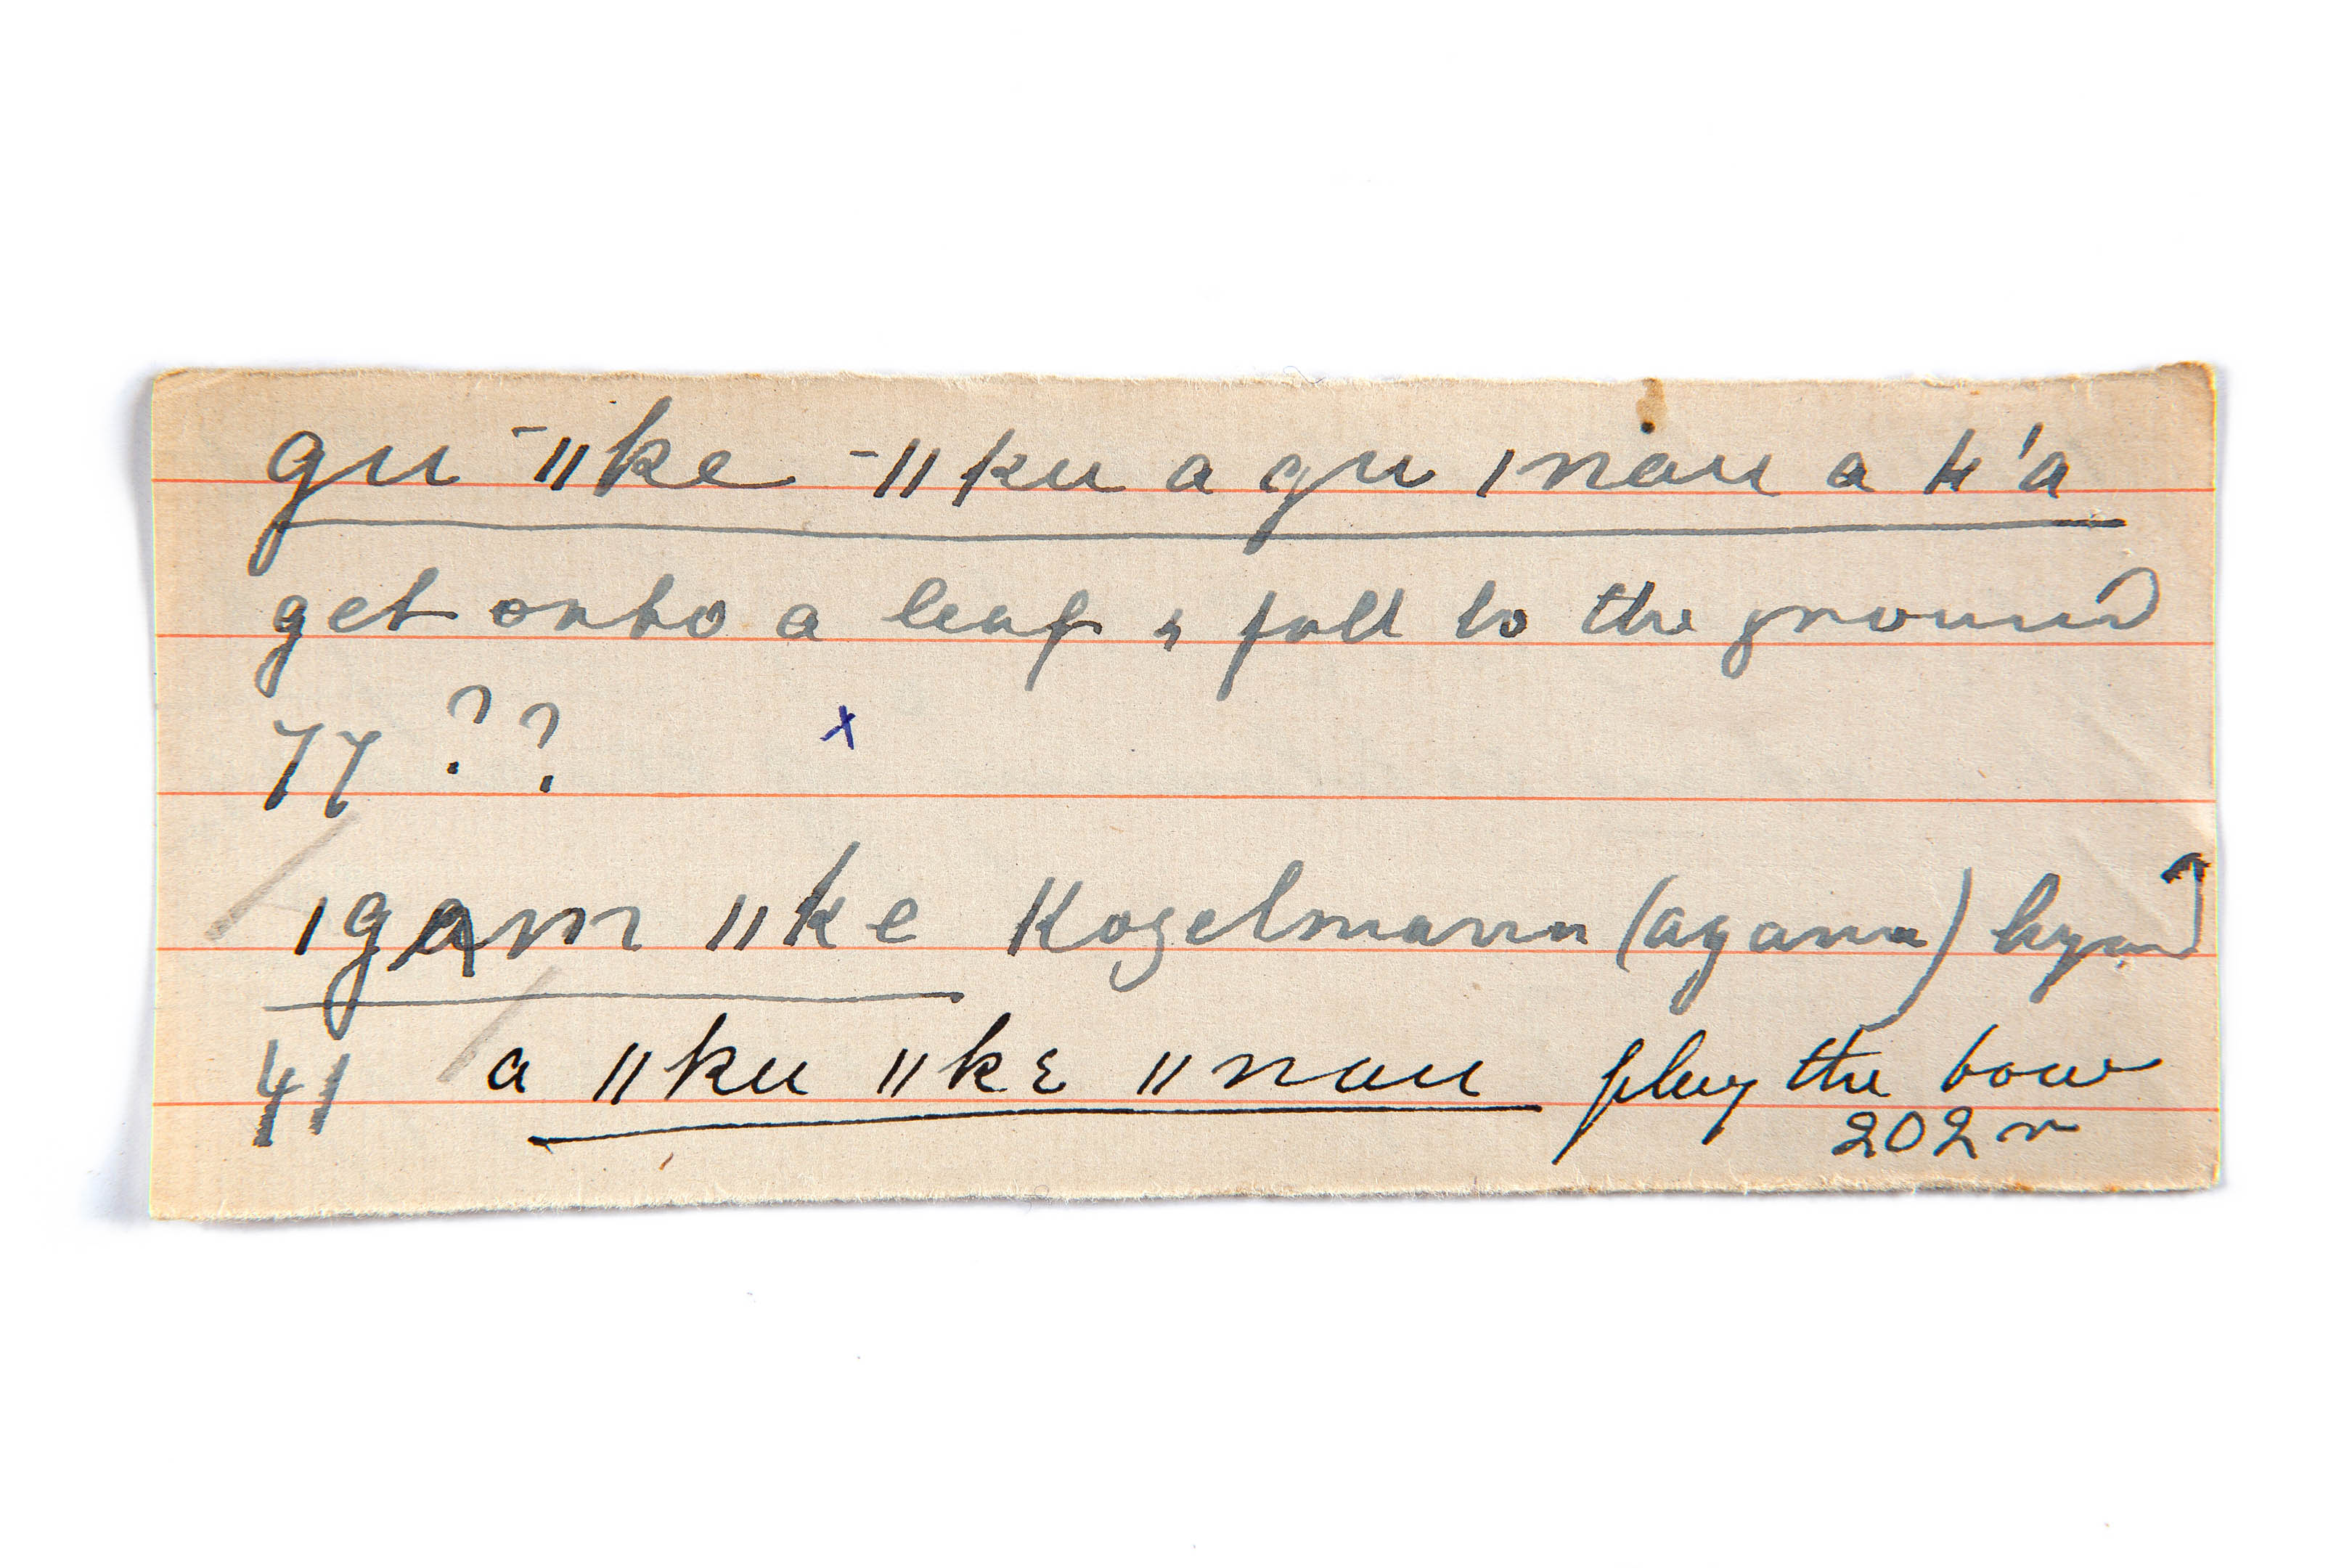 gu ¯ǁke -ǁku a gu ǀnau a k'a
get onto a leaf & fall to the ground
77 ?? x
ǀgam ǁke Kogelmann (agama)
41 a ǁku ǁkɛ ǁnau play the bow
202 r